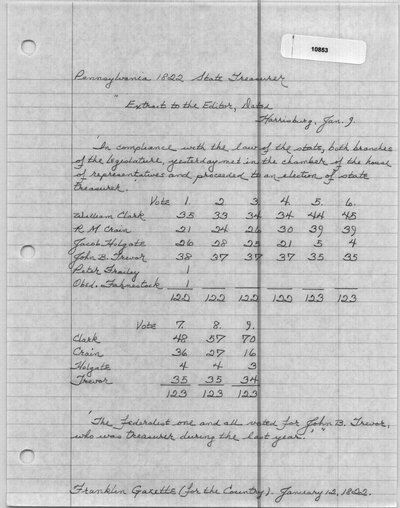 10853
Pennsylvania 1822 State Treasurer
"Extract to the Editor, Dated
Harrisburg, Jan. 9.
'In compliance with the law of the state, both branches
of the legislature, yesterday met in the chamber of the house
of representatives and proceeded to an election of state
treasurer.
Vote 1. 2. 3 4. 5. 6.
William Clark 35 33 34 34 44 45
R. M. Crain 21 24 26 30 39 39
Jacob Holgate 26 28 25 21 5 4
John B. Trevor 38 37 37 37 35 35
Peter Frailey 1
Obed. Fahnestock 1
122 122 122 122 123 123
Vote 7. 8. 9.
Clark 48 57 70
Crain 36 27 16
Holgate 4 4 3
Trevor 35 35 34
123 123 123
'The Federalist one and all voted for John B. Trevor,
who was treasurer during the last year.'"
Franklin Gazette (for the Country). January 12, 1822.